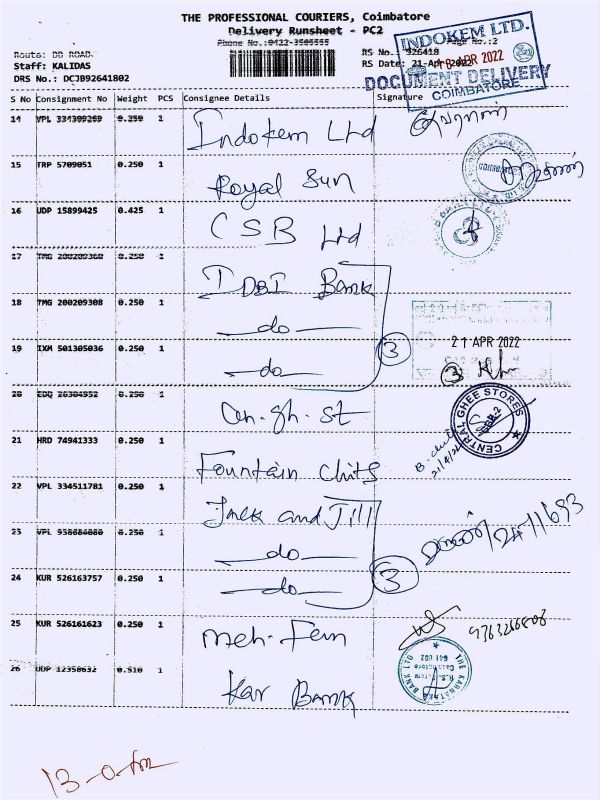 THE PROFESSIONAL COURIERS, Coimbatore
Delivery Runsheet - PC2
Phone No.:0422-3505555
Page No.:2
Route: DD ROAD
RS No.: 926418
Staff: KALIDAS
RS Date: 21-Apr-2022
DRS No.: DCJB92641802
INDOKEM LTD.
APR 2022
DOCUMENT DELIVERY
COIMBATORE
S No Consignment No Weight PCS Consignee Details Signature
14 VPL 334399269 0.250 1 Indokem Ltd
15 TRP 5709051 0.250 1 Royal Sun
16 UDP 15899425 0.425 1 CSB Ltd
17 TMG 200209360 0.250 1 IDBI Bank
18 TMG 200209308 0.250 1 —do—
19 IXM 501305036 0.250 1 —do— 3
21 APR 2022
3
20 EDQ 26304952 0.250 1 Cen. gh. st
CENTRAL GHEE STORES
CBR-2
21 HRD 74941333 0.250 1 Fountain Chits
22 VPL 334511781 0.250 1 Jack and Jill
23 VPL 0.250 1 —do—
24 KUR 526163757 0.250 1 —do— 3
25 KUR 526161623 0.250 1 Meh. Fein
26 UDP 12358632 0.510 1 Kar Bank
THE KARNATAKA BANK LTD
Coimbatore
641 002